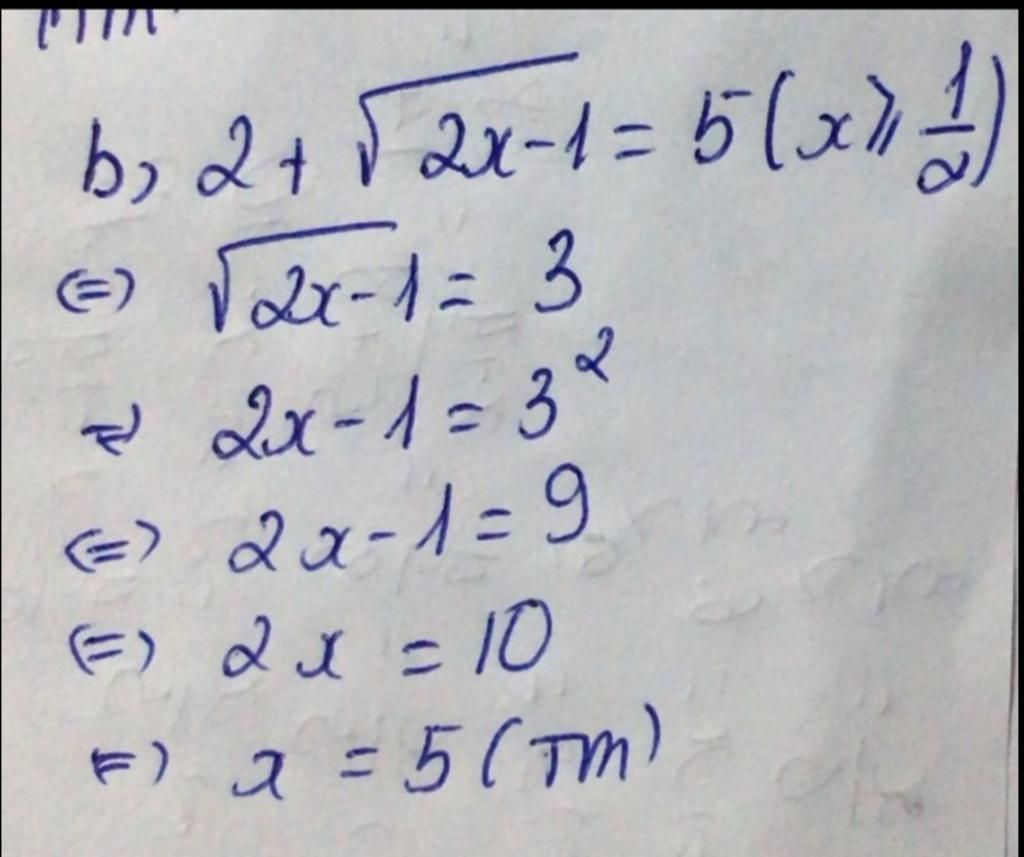 b, 2 + √2x-1 = 5 (x ⩾ 1/2)
(=) √2x-1 = 3
=) 2x-1 = 3²
(=) 2x-1 = 9
(=) 2x = 10
=) x = 5 (TM)